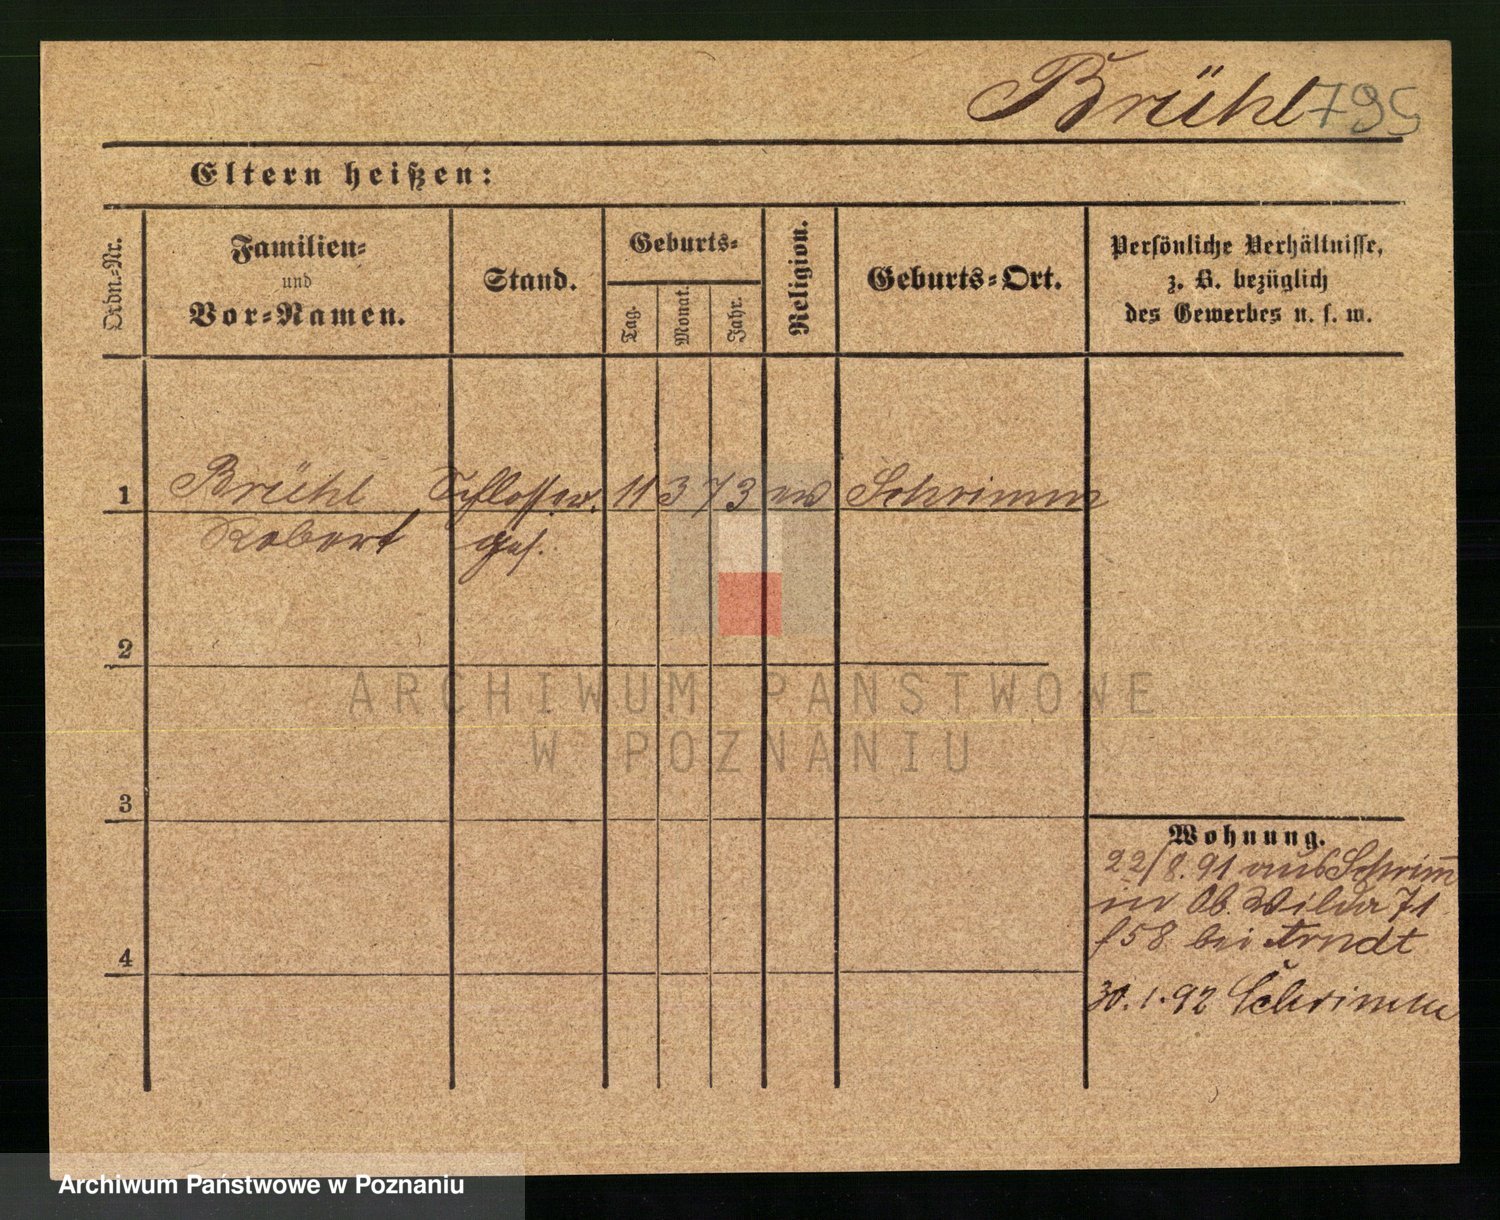 Brühl 795
Eltern heißen:
Ordn.-Nr.
Familien-
und
Vor-Namen.
Stand.
Geburts-
Tag.
Monat.
Jahr.
Religion.
Geburts-Ort.
Persönliche Verhältnisse,
z. B. bezüglich
des Gewerbes u. s. w.
1 Brühl Schlosser. 11 3 73 ev Schrimm
Robert ges.
2
3
4
Wohnung.
22/8.91 aus Schrim̅
in Ob. Wilda 71
f58 bei Arndt
30.1.92 Schrimm
ARCHIWUM PAŃSTWOWE
W POZNANIU
Archiwum Państwowe w Poznaniu